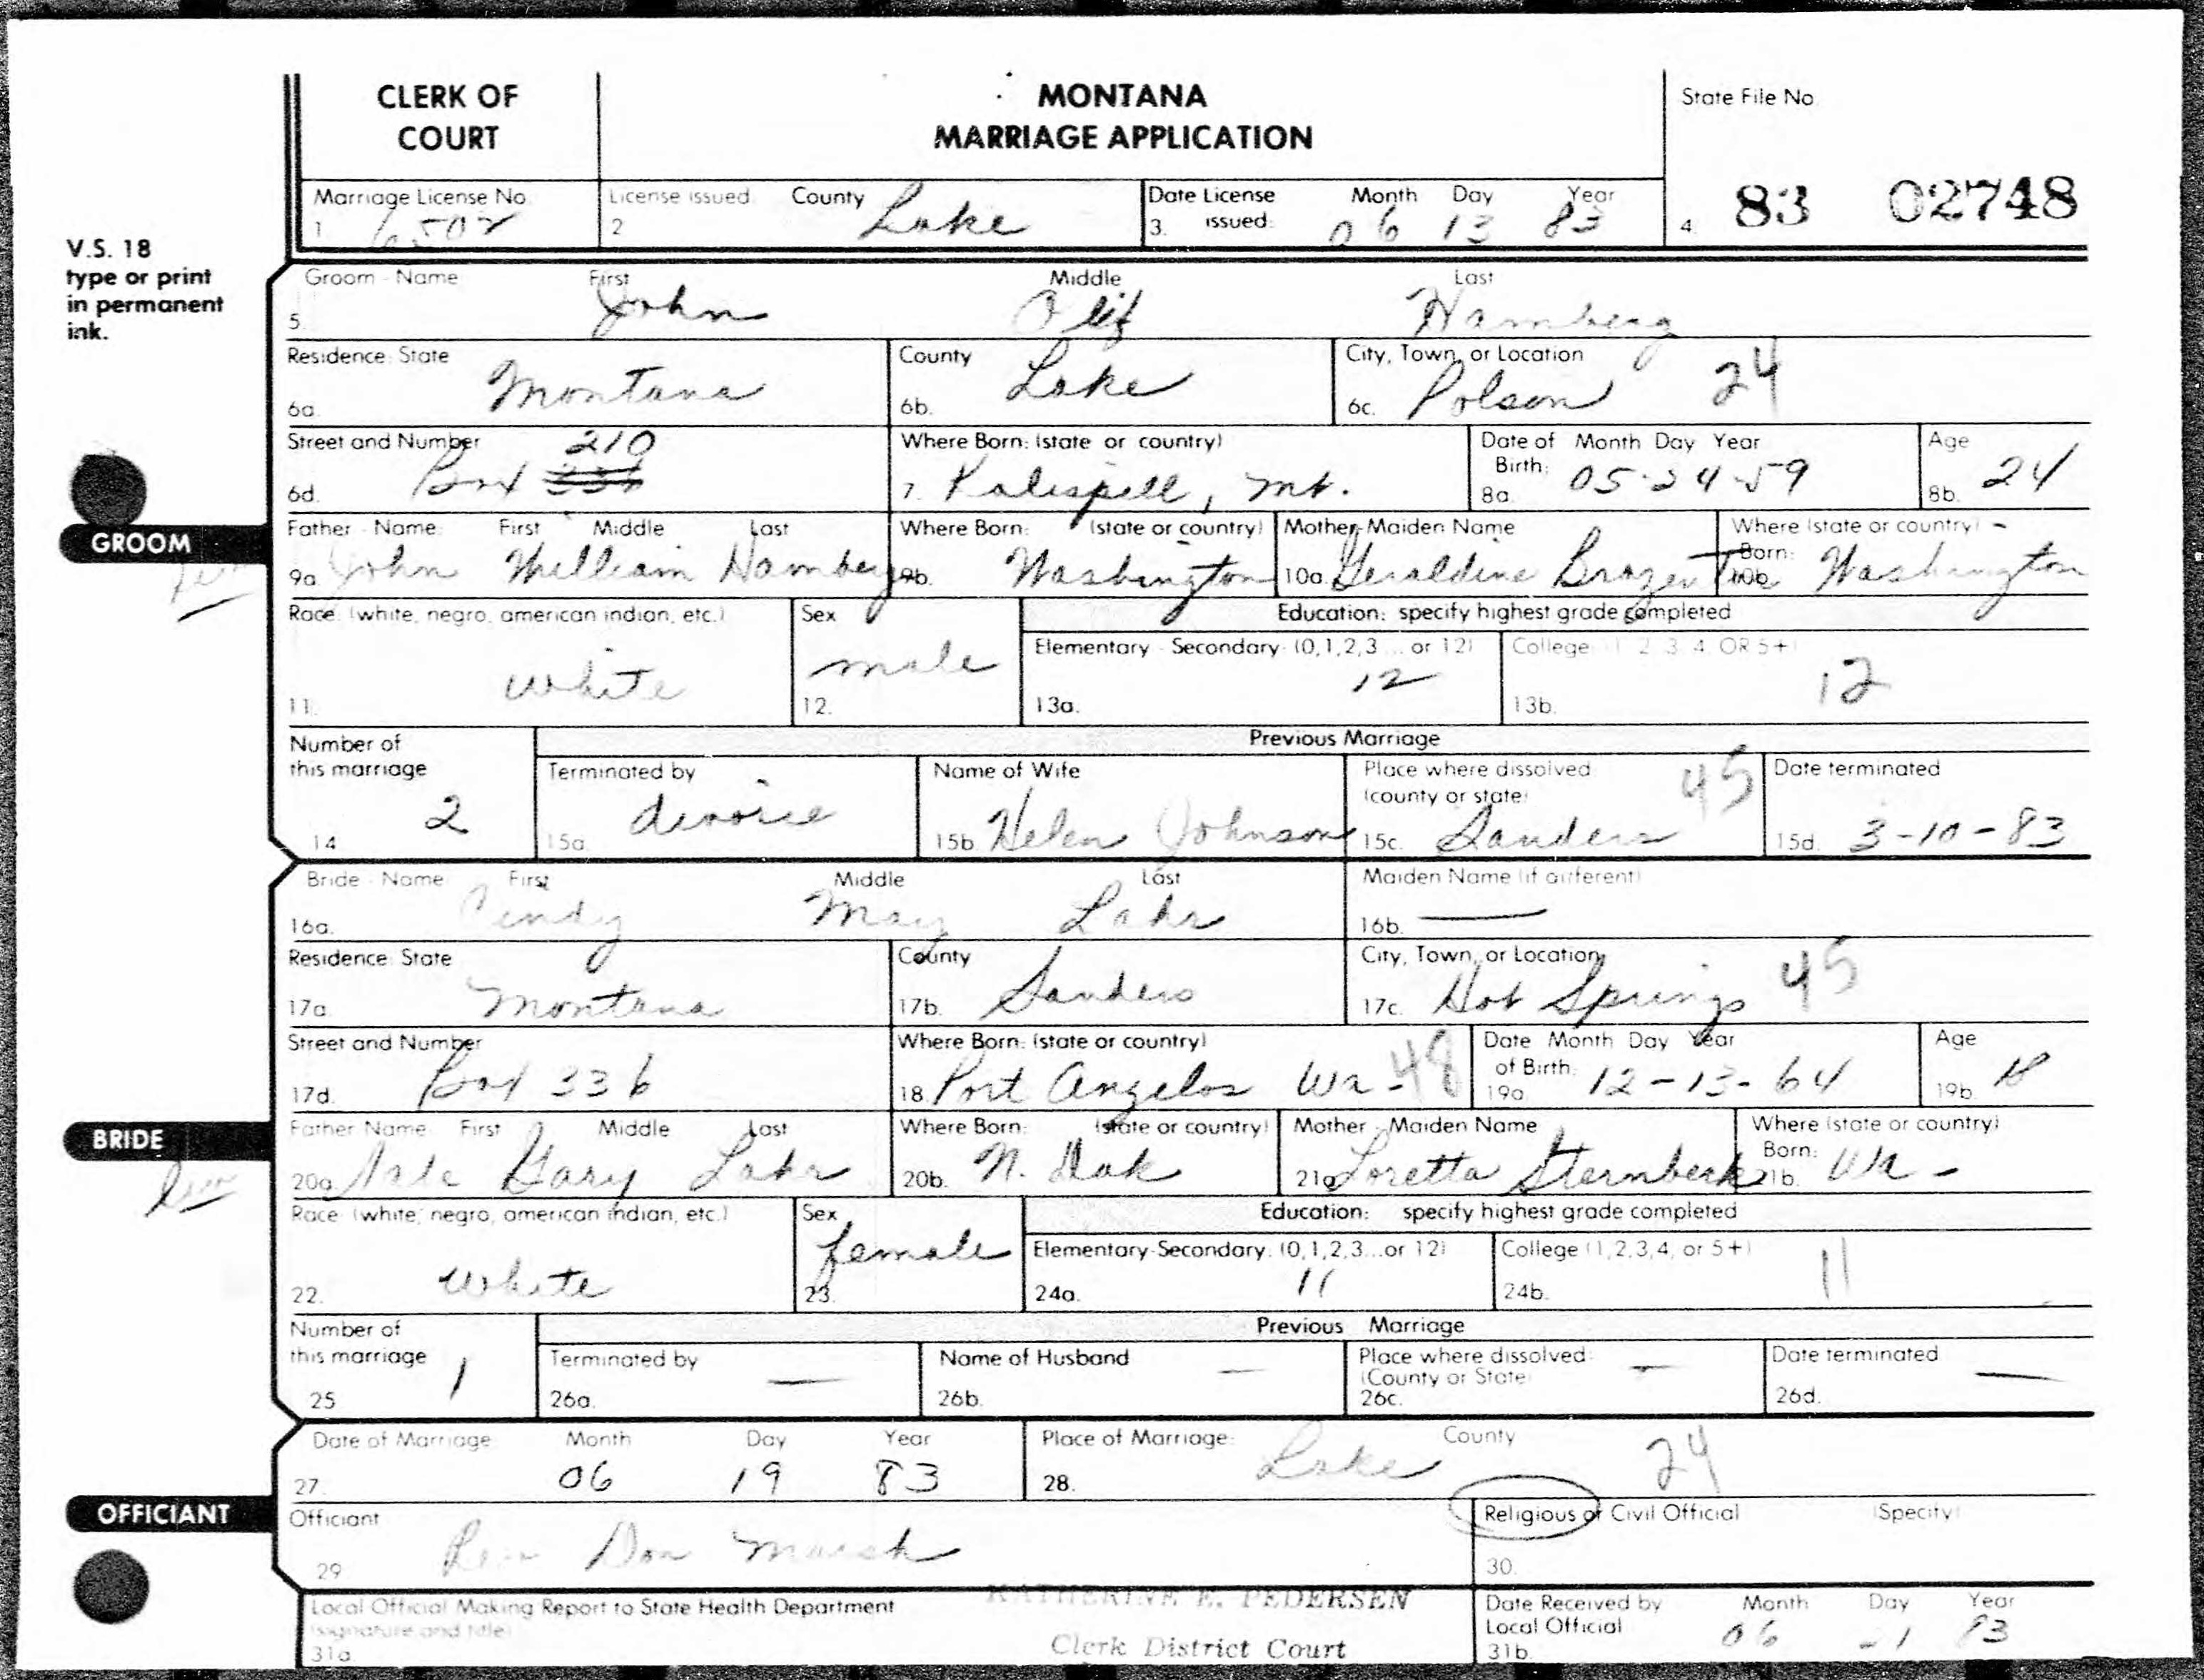 CLERK OF COURT
MONTANA
MARRIAGE APPLICATION
State File No.
4. 83 02748
Marriage License No. 1 6502
License issued: County 2 Lake
Date License issued: Month Day Year 3. 06 13 83
V.S. 18
type or print
in permanent
ink.
GROOM
Groom - Name First Middle Last
5. John Olif Hamberg
Residence: State County City, Town, or Location
6a. Montana 6b. Lake 6c. Polson 24
Street and Number Where Born: (state or country) Date of Birth: Month Day Year Age
6d. Box 336 210 7. Kalispell, Mt. 8a. 05-24-59 8b. 24
Father - Name: First Middle Last Where Born: (state or country) Mother-Maiden Name Where Born: (state or country)
9a. John William Hamberg 9b. Washington 10a. Geraldine 10b. Washington
Race: (white, negro, american indian, etc.) Sex Education: specify highest grade completed
Elementary - Secondary: (0,1,2,3 ... or 12) College: (1, 2, 3, 4, OR 5+)
11. white 12. male 13a. 12 13b. 12
Number of this marriage Previous Marriage
Terminated by Name of Wife Place where dissolved: (county or state) Date terminated
14 2 15a. divorce 15b. Helen Johnson 15c. Sanders 45 15d. 3-10-83
BRIDE
Bride - Name First Middle Last Maiden Name (if different)
16a. Cindy May Lahr 16b. —
Residence: State County City, Town, or Location
17a. Montana 17b. Sanders 17c. Hot Springs 45
Street and Number Where Born: (state or country) Date of Birth: Month Day Year Age
17d. Box 336 18. Port Angelos Wa - 48 19a. 12-13-64 19b. 18
Father Name: First Middle Last Where Born: (state or country) Mother - Maiden Name Where Born: (state or country)
20a. Dale Gary Lahr 20b. N. Dak 21a. Loretta 21b. Wa -
Race: (white, negro, american indian, etc.) Sex Education: specify highest grade completed
Elementary-Secondary: (0,1,2,3...or 12) College (1,2,3,4, or 5+)
22. White 23. female 24a. 11 24b. 11
Number of this marriage Previous Marriage
Terminated by Name of Husband Place where dissolved: (County or State) Date terminated
25 1 26a. — 26b. — 26c. — 26d. —
OFFICIANT
Date of Marriage: Month Day Year Place of Marriage: County
27. 06 19 83 28. Lake 24
Officiant Religious or Civil Official (Specify)
29 Rev Don Marsh 30.
Local Official Making Report to State Health Department
(signature and title)
31a. KATHERINE E. PEDERSEN
Clerk District Court
Date Received by Local Official Month Day Year
31b. 06 83